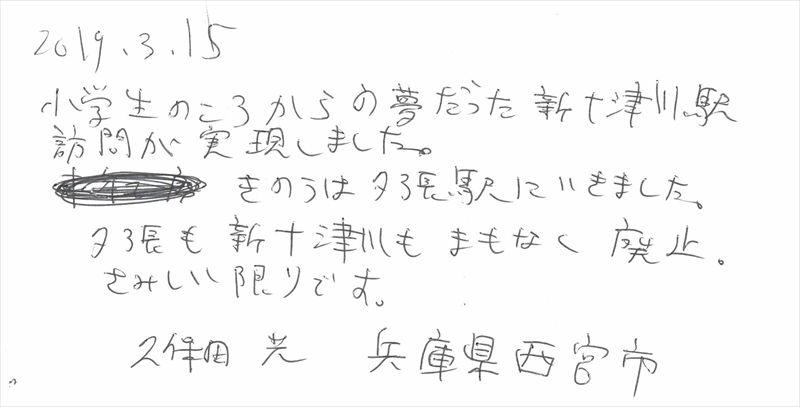 2019.3.15
小学生のころからの夢だった新十津川駅
訪問が実現しました。
きのうは夕張駅にいきました。
夕張も新十津川もまもなく廃止。
さみしい限りです。
久保田 光 兵庫県西宮市